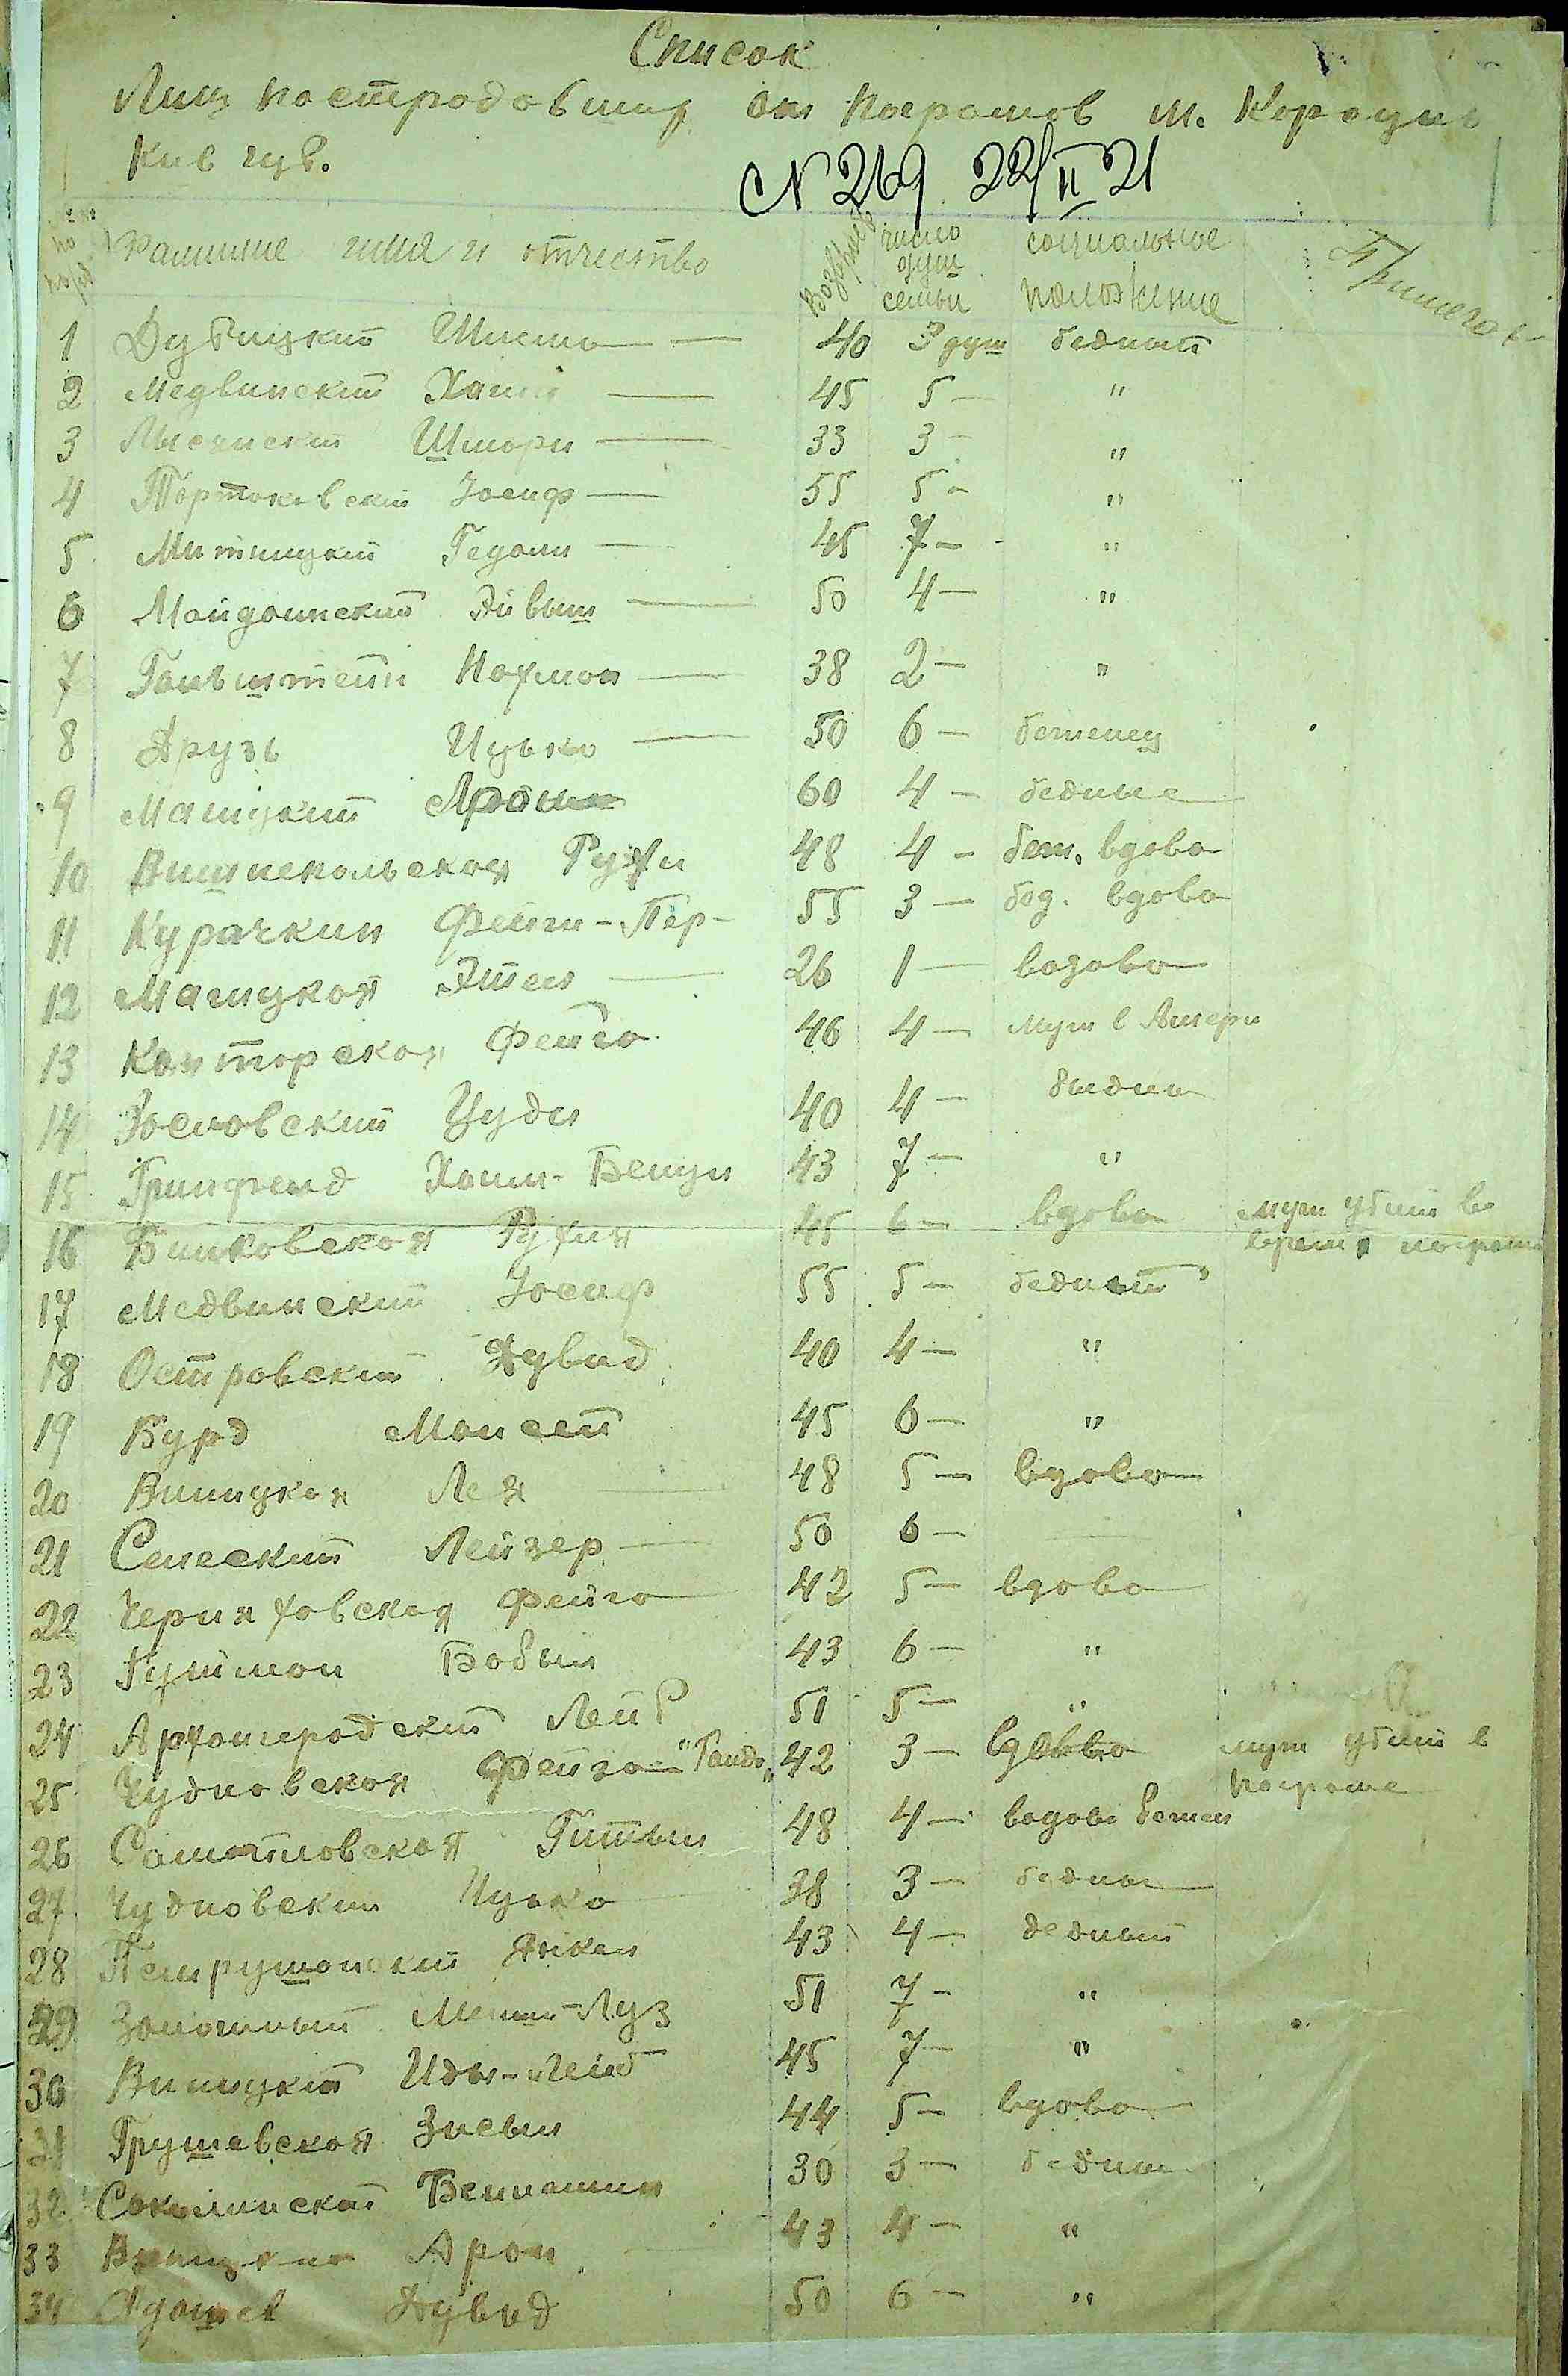 Список
Лиц пострадовших от погромов м. Корсунь
Киев губ.
N 269 22/II 21
№ по пор. Фамилие имя и отчество Возраст число душ семьи социальное положение Примечан
1 Дубицкий Шмема — 40 3 душ бедный
2 Медвинский Хаим — 45 5 — "
3 Лысянский Шмори — 33 3 — "
4 Портоковский Іосиф — 55 5 — "
5 Митницкий Гедали — 45 7 — "
6 Майданский — 50 4 — "
7 Гольштейн Нахман — 38 2 — "
8 Друзь Ицько — 50 6 — беженец
9 Машуцкий Арон 60 4 — бедные
10 Вишнепольская Рухи 48 4 — беж. вдова
11 Курачкин Фейги-Пер- 55 3 — бед. вдова
12 Мащукая Этел — 26 1 — вдова
13 Канторская Фейга 46 4 — муж в Амери
14 Іосиловский Іуди 40 4 — бедны
15 Гринфелд Хаим-Бенцн 43 7 — "
16 Быковская Рухия 45 6 — вдова муж убит во
время погрома
17 Медвинский Іосиф 55 5 — бедный
18 Островский Дувид 40 4 — "
19 Бурд Моисей 45 6 — "
20 Виницкая Лея 48 5 — вдова
21 Смеский Лейзер — 50 6 —
22 Черняховская Фейга 42 5 — вдова
23 Гутман Бобыл 43 6 — "
24 Архангородский Лейб 51 5 — "
25 Чудновская Фейга — 42 3 — вдова муж убит в
погроме
26 Гитыл 48 4 — вдова бежен
27 Чудновский Ицько 38 3 — бедны
28 Петрушанский Янкел 43 4 — бедный
29 Залозный 51 7 — "
30 Виницкий Иды-Лейб 45 7 — "
31 Грушевская Зисыл 44 5 — вдова
32 Соколинский Бениамин 30 3 — бедны
33 Виницкий Арон 43 4 — "
34 Дувид 50 6 — "